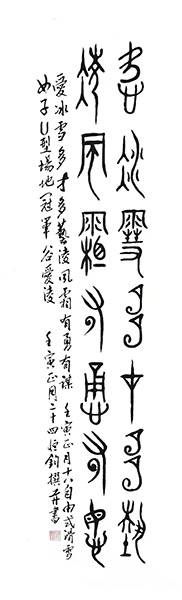 愛冰雪多才多藝
凌風霜有勇有謀
愛冰雪多才多藝凌風霜有勇有謀 壬寅正月十八自由式滑雪
女子U型場地冠軍谷愛凌 壬寅正月二十四恒鈞撰并書